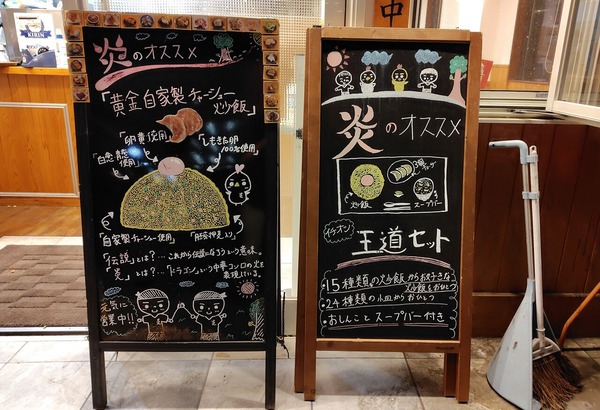 KIRIN
炎のオススメ
「黄金自家製チャーシュー
炒飯」
「卵黄使用」
「自家製チャーシュー使用」
「伝説」とは?…これから伝説になろうという意味。
「炎」とは?…「ドラゴン」という中華コンロの火を
表現している。
元気に
営業中!!
中
炎のオススメ
炒飯
スープバー
イチオシ
王道セット
・15種類の炒飯からお好きな
炒飯をおひとつ
・24種類の小皿からおひとつ
・おしんことスープバー付き